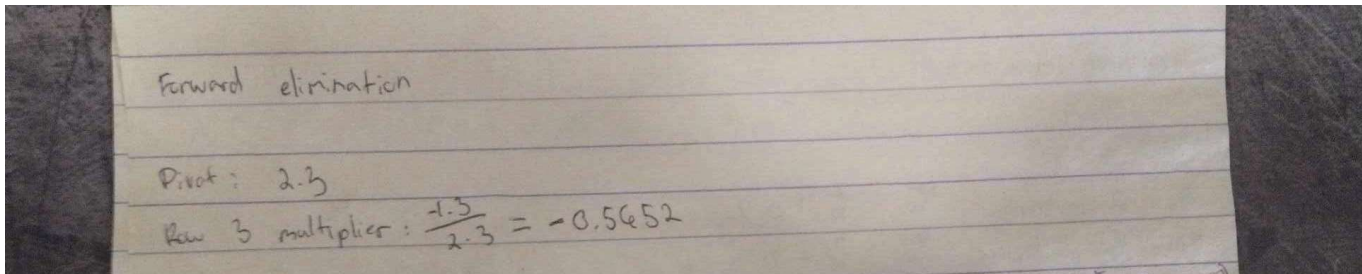 Forward elimination
Pivot: 2.3
Row 3 multiplier: -1.3/2.3 = -0.5652